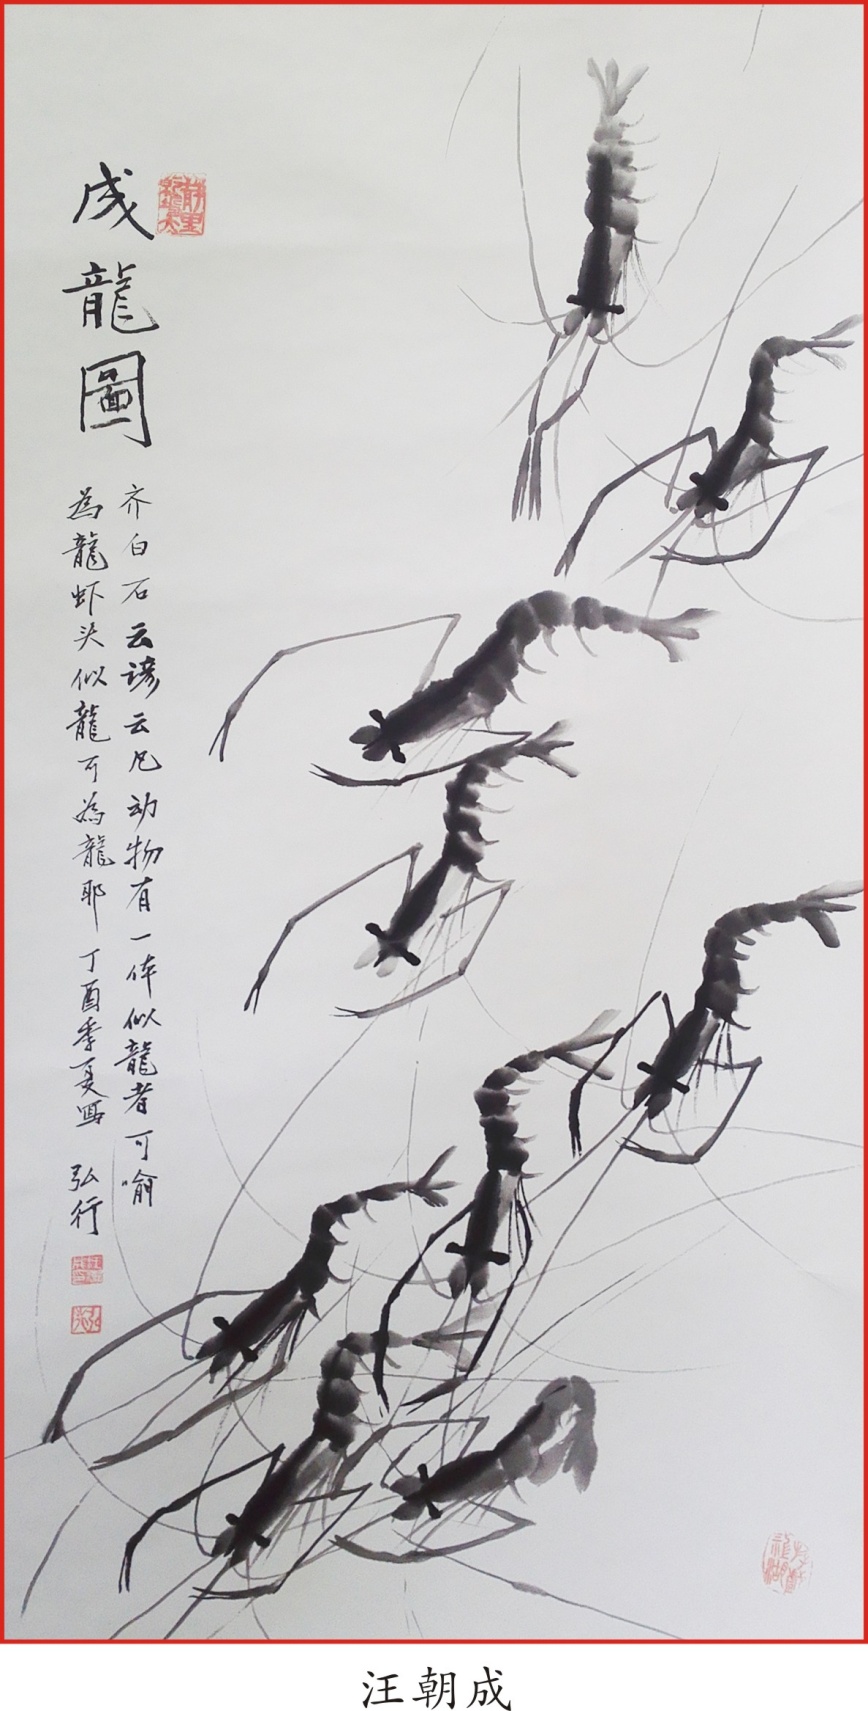 成龍圖
齐白石云谚云凡动物有一体似龍者可喻
為龍虾头似龍可為龍耶 丁酉季夏写 弘行
汪朝成